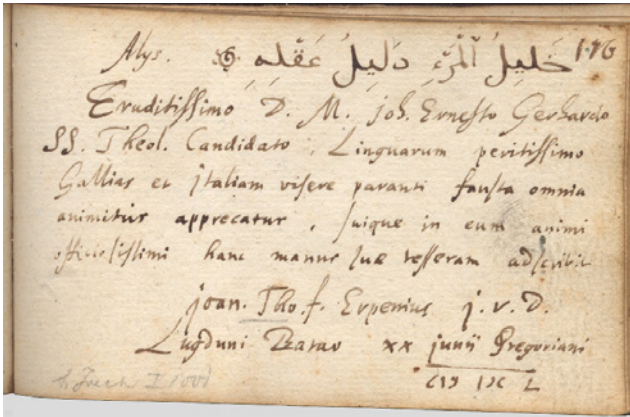 Alys. خَلِيلُ ٱلْمَرْءِ دَلِيلُ عَقْلِهِ 176
Eruditissimo D. M. Joh. Ernesto Gerhardo
SS. Theol. Candidato, Linguarum peritissimo
Gallias et Italiam visere paranti fausta omnia
animitus apprecatur, suique in eum animi
officiosissimi hanc manus suæ tesseram adscribit
Joan. Tho. f. Erpenius J. V. D.
Lugduni Batav xx junii Gregoriani
CIↃ IↃC L